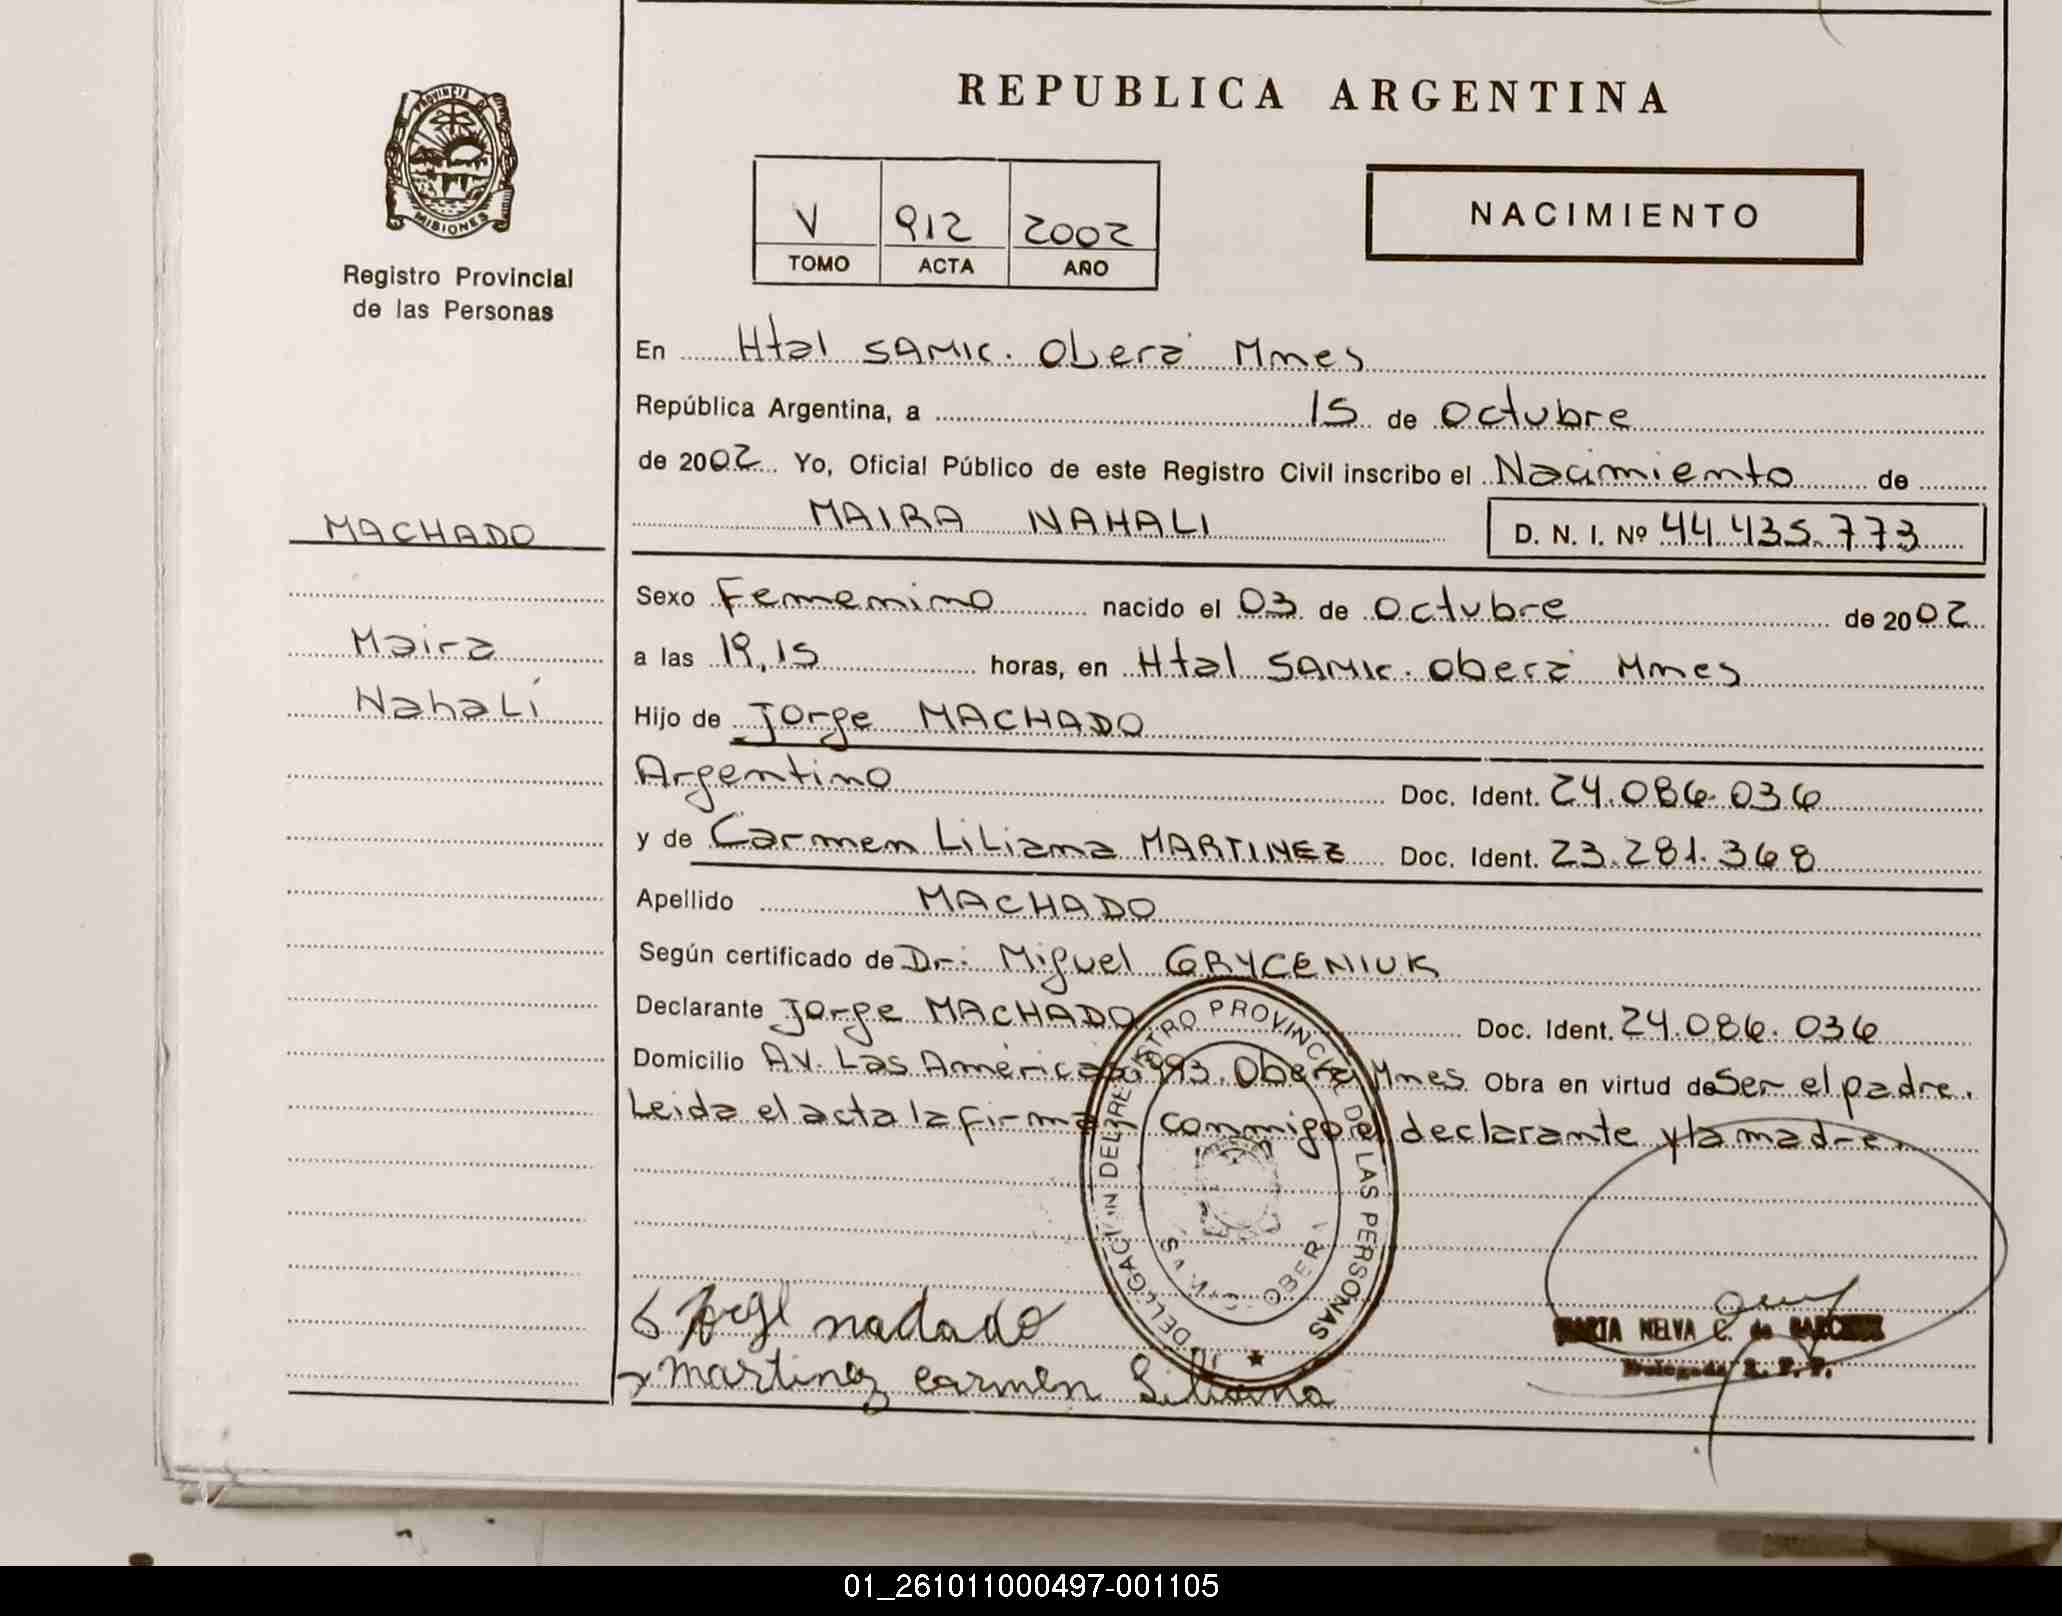 REPUBLICA ARGENTINA
PROVINCIA DE
MISIONES
Registro Provincial
de las Personas
V 912 2002
TOMO ACTA AÑO
NACIMIENTO
En Htal SAMIC. Oberá Mnes
República Argentina, a 15 de octubre
de 2002 Yo, Oficial Público de este Registro Civil inscribo el Nacimiento de
MACHADO
MAIRA NAHALI D. N. I. Nº 44.435.773
Maira
Nahalí
Sexo Femenino nacido el 03 de octubre de 2002
a las 19,15 horas, en Htal SAMIC. Oberá Mnes
Hijo de Jorge MACHADO
Argentino Doc. Ident. 24.086.036
y de Carmen Liliana MARTINEZ Doc. Ident. 23.281.368
Apellido MACHADO
Según certificado de Dr: Miguel GRYCENIUK
Declarante Jorge MACHADO Doc. Ident. 24.086.036
Domicilio Av. Las Américas 993. Oberá Mnes Obra en virtud de Ser el padre.
Leida el acta la firman conmigo el declarante y la madre.
DELEGACION DEL REGISTRO PROVINCIAL DE LAS PERSONAS
S.A.M.I.C. OBERA
Jorge
martinez carmen Liliana
MARTA NELVA C. de
Delegada R. P. P.
01_261011000497-001105